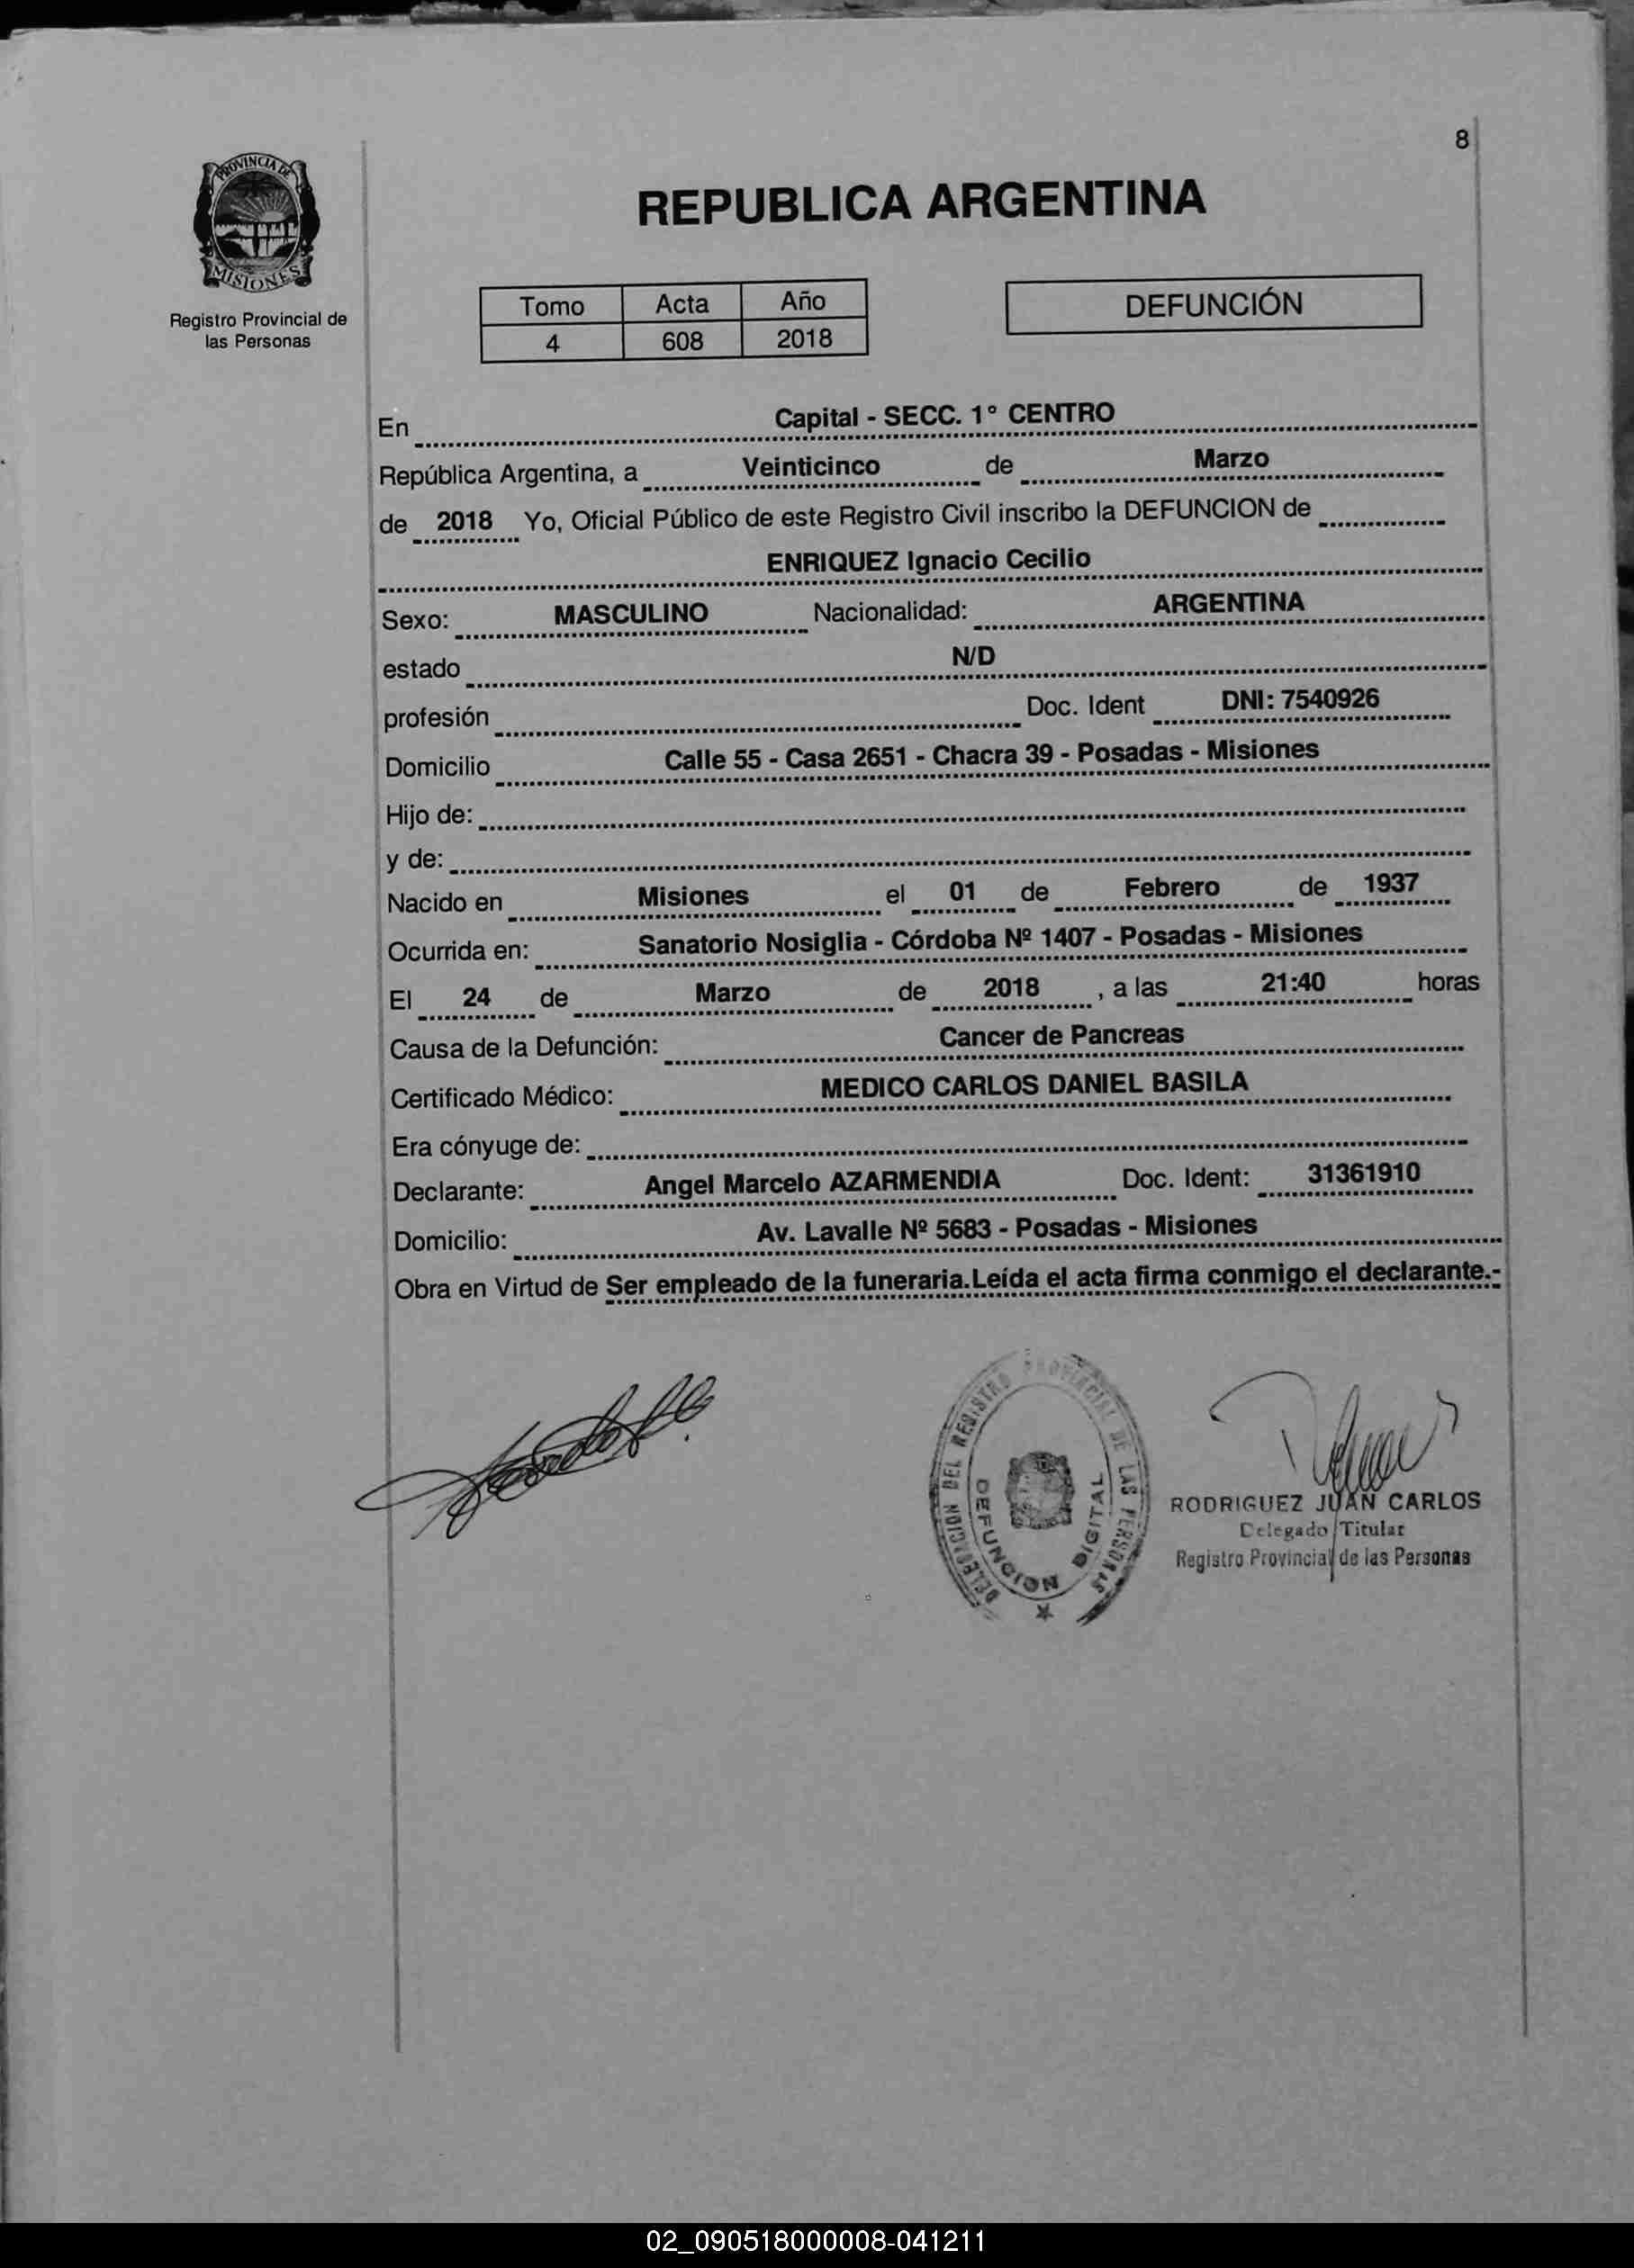 8
PROVINCIA DE
MISIONES
Registro Provincial de
las Personas
REPUBLICA ARGENTINA
Tomo Acta Año
4 608 2018
DEFUNCIÓN
En Capital - SECC. 1° CENTRO
República Argentina, a Veinticinco de Marzo
de 2018 Yo, Oficial Público de este Registro Civil inscribo la DEFUNCION de
ENRIQUEZ Ignacio Cecilio
Sexo: MASCULINO Nacionalidad: ARGENTINA
estado N/D
profesión Doc. Ident DNI: 7540926
Domicilio Calle 55 - Casa 2651 - Chacra 39 - Posadas - Misiones
Hijo de:
y de:
Nacido en Misiones el 01 de Febrero de 1937
Ocurrida en: Sanatorio Nosiglia - Córdoba Nº 1407 - Posadas - Misiones
El 24 de Marzo de 2018 , a las 21:40 horas
Causa de la Defunción: Cancer de Pancreas
Certificado Médico: MEDICO CARLOS DANIEL BASILA
Era cónyuge de:
Declarante: Angel Marcelo AZARMENDIA Doc. Ident: 31361910
Domicilio: Av. Lavalle Nº 5683 - Posadas - Misiones
Obra en Virtud de Ser empleado de la funeraria.Leída el acta firma conmigo el declarante.-
DELEGACION DEL REGISTRO PROVINCIAL DE LAS PERSONAS
DEFUNCION DIGITAL
RODRIGUEZ JUAN CARLOS
Delegado Titular
Registro Provincial de las Personas
02_090518000008-041211